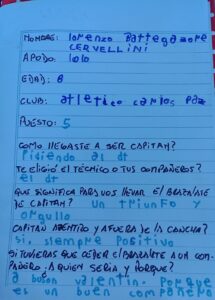 NOMBRE: lorenzo Battegazore
CERVELLINI
APODO: lolo
EDAD: 8
CLUB: atletico carlos paz
PUESTO: 5
COMO LLEGASTE A SER CAPITAN?
Pidiendo al dt
TE ELIGIÓ EL TÉCNICO O TUS COMPAÑEROS?
el dt
QUE SIGNIFICA PARA VOS LLEVAR EL BRAZALETE
DE CAPITAN? un triunfo y
orgullo
CAPITAN ADENTRO Y AFUERA DE LA CANCHA?
si, siempre positivo
SI TUVIERAS QUE CEDER EL BRAZALETE A UN COM-
PAÑERO, A QUIEN SERIA Y PORQUE?
a buson valentin. Porque
es un buen compañero